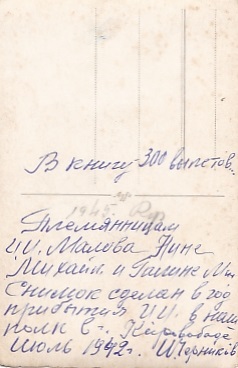 В книгу 300 вылетов.
1945
Племянницам
И.И. Малова Нине
Михайл. и Галине Мих.
Снимок сделан в год
прибытия И.И. в наш
полк в г. Кировабаде
июль 1942г. И Черников